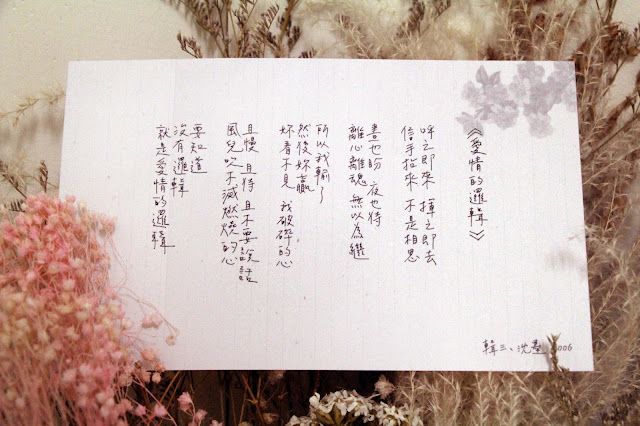 《愛情的邏輯》
呼之即來 揮之即去
信手拈來 不是相思
晝也盼 夜也待
離心離魂 無以為繼
所以我輸了
然後妳贏
妳看不見 我破碎的心
且慢 且待 且不要說話
風兒吹不滅燃燒的心
要知道
沒有邏輯
就是愛情的邏輯
韓三、沈墨 2006